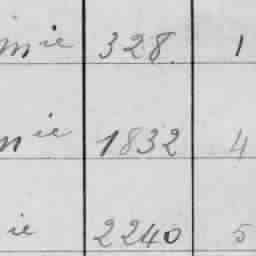 mie 328. 1
nie 1832 4
ie 2240 5